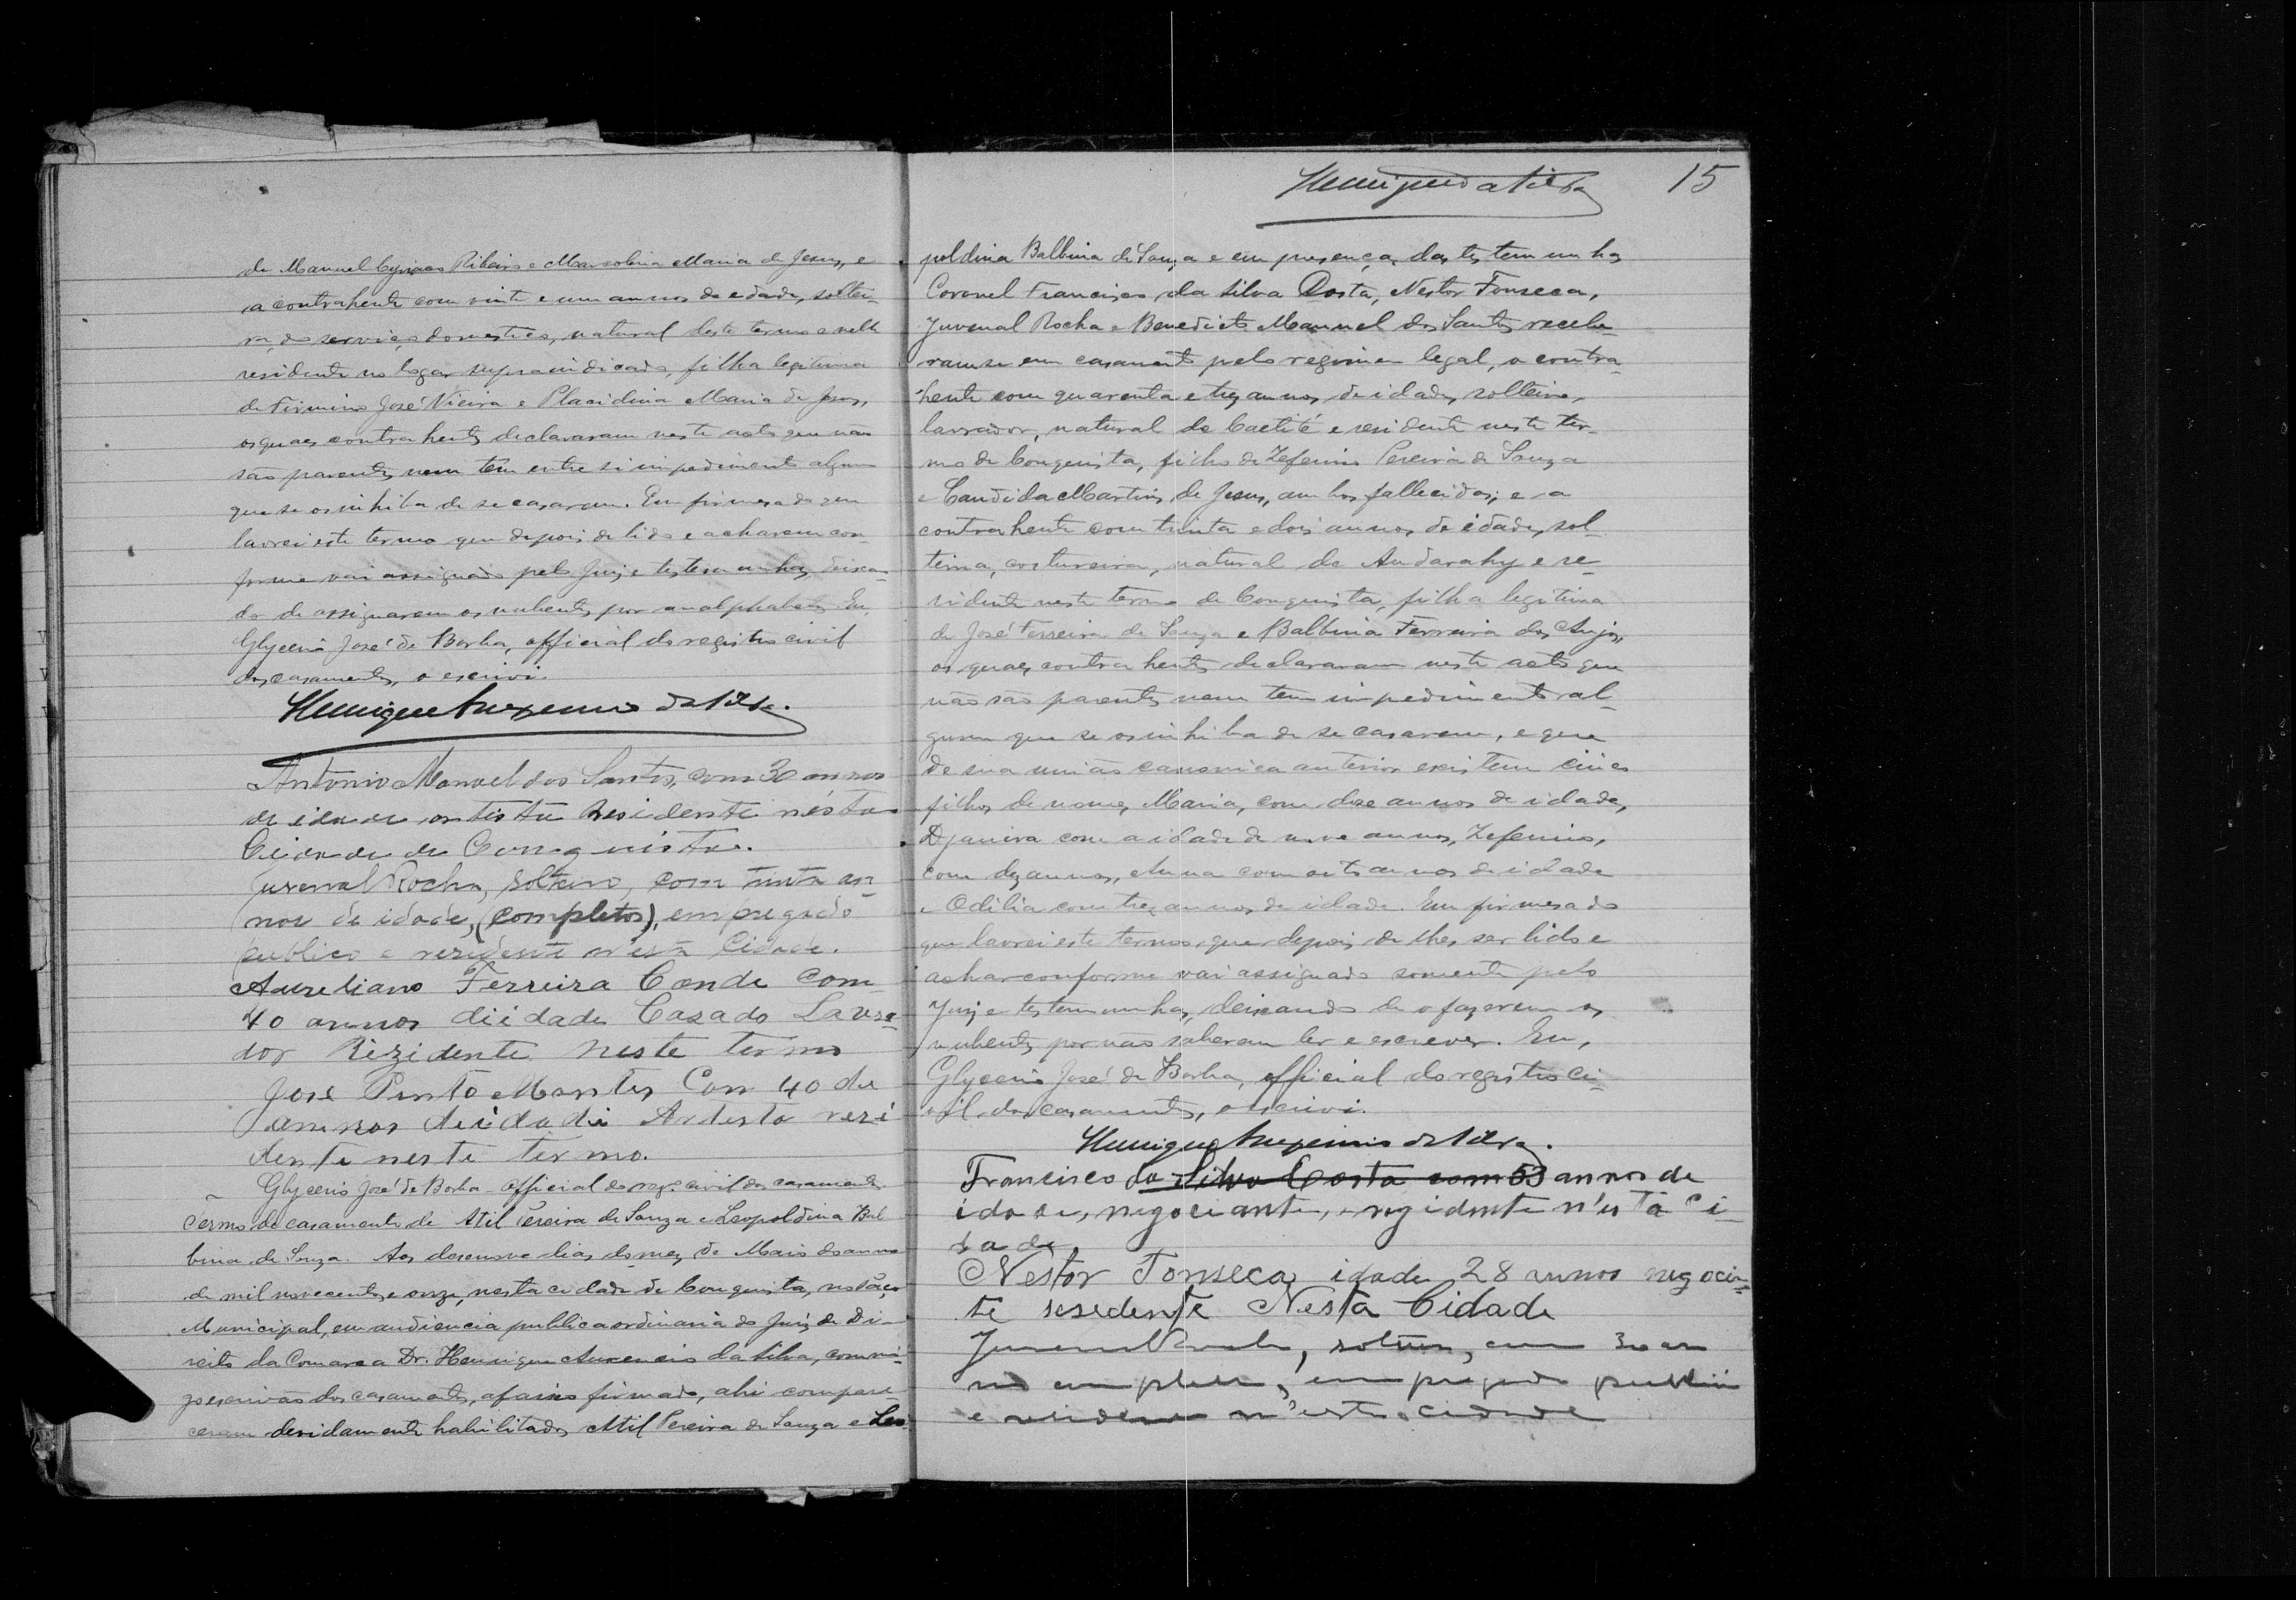 de Manuel Cypriano Ribeiro e Marcolina Maria de Jesus, e
a contrahente com vinte e um annos de edade, soltei-
ra, do serviço domestico, natural deste termo e nelle
residente no logar supraindicado, filha legitima
de Firmino José Vieira e Placidina Maria de Jesus,
os quaes contrahentes declararam neste acto que não
são parentes nem tem entre si impedimento algum
que se os inhiba de se casarem. Em firmesa do que
lavrei este termo que depois de lido e acharem con-
forme vai assignado pelo Juiz e testemunhas, deixan-
do de assignarem os nubentes por analphabetos. Eu,
Glycerio José de Borba, official do registro civil
dos casamentos, o escrivi.
Henrique Auxencio da Silva.
Antonio Manoel dos Santos, com 30 annos
de idade artista Residente nésta
Cidade de Conquista.
Juvenal Rocha, solteiro, com trinta an-
nos de idade, (completos), empregado
publico e rezidente n'esta Cidade.
Aureliano Ferreira Conde com
40 annos diidade Cazado Lavra-
dor Rezidente neste termo
José Pinto Montes Com 40 de
annos deidade Artista rezi
dente neste termo.
Glycerio José de Borba official do regº civil dos casamentos
Termo de casamento de Atil Pereira de Souza e Leopoldina Bal
bina de Souza. Aos desenove dias do mez de Maio do anno
de mil novecentos e onze, nesta cidade de Conquista, no Paço
Municipal, em audiencia publica ordinaria do Juiz de Di-
reito da Comarca Dr. Henrique Auxencio da Silva, commi-
go escrivão dos casamentos, abaixo firmado, ahi compare-
ceram devidamente habilitados Atil Pereira de Souza e Leo-
Henrique da Silva 15
poldina Balbina de Souza e em presença das testemunhas
Coronel Francisco da Silva Costa, Nestor Fonseca,
Juvenal Rocha e Benedicto Manuel dos Santos recebe-
ram se em casamento pelo regimen legal, o contra-
hente com quarenta e trez annos de idade, solteiro,
lavrador, natural de Caetité e residente neste ter-
mo de Conquista, filho de Zeferino Pereira de Souza
e Candida Martins de Jesus, ambos fallecidos; e a
contrahente com trinta e dois annos de idade, sol-
teira, costureira, natural de Andarahy e re-
sidente neste termo de Conquista, filha legitima
de José Ferreira de Souza e Balbina Ferreira dos Anjos,
os quaes contrahentes declararam neste acto que
não são parentes nem tem impedimento al-
gum que se os inhiba de se casarem, e que
de sua união canonica anterior existem cinco
filhos de nomes Maria, com dose annos de idade,
Djanira com a idade de nove annos, Zeferino,
com dez annos, Anna com oito annos de idade
e Odilia com trez annos de idade. Em firmesa do
que lavrei este termo, que depois de lhes ser lido e
achar conforme vai assignado somente pelo
Juiz e testemunhas, deixando de o fazerem os
nubentes por não saberem ler e escrever. Eu,
Glycerio José de Borba, official do registro ci-
vil dos casamentos, o escrivi.
Henrique Auxencio da Silva.
Francisco da Silva Costa com 53 annos de
idade, negociante, e rezidente n'esta Ci-
dade
Nestor Fonseca, idade 28 annos negocian-
te resedente Nesta Cidade
Juvenal Rocha, solteiro, com 30 an
nos completos, empregado publico
e residente n'esta cidade